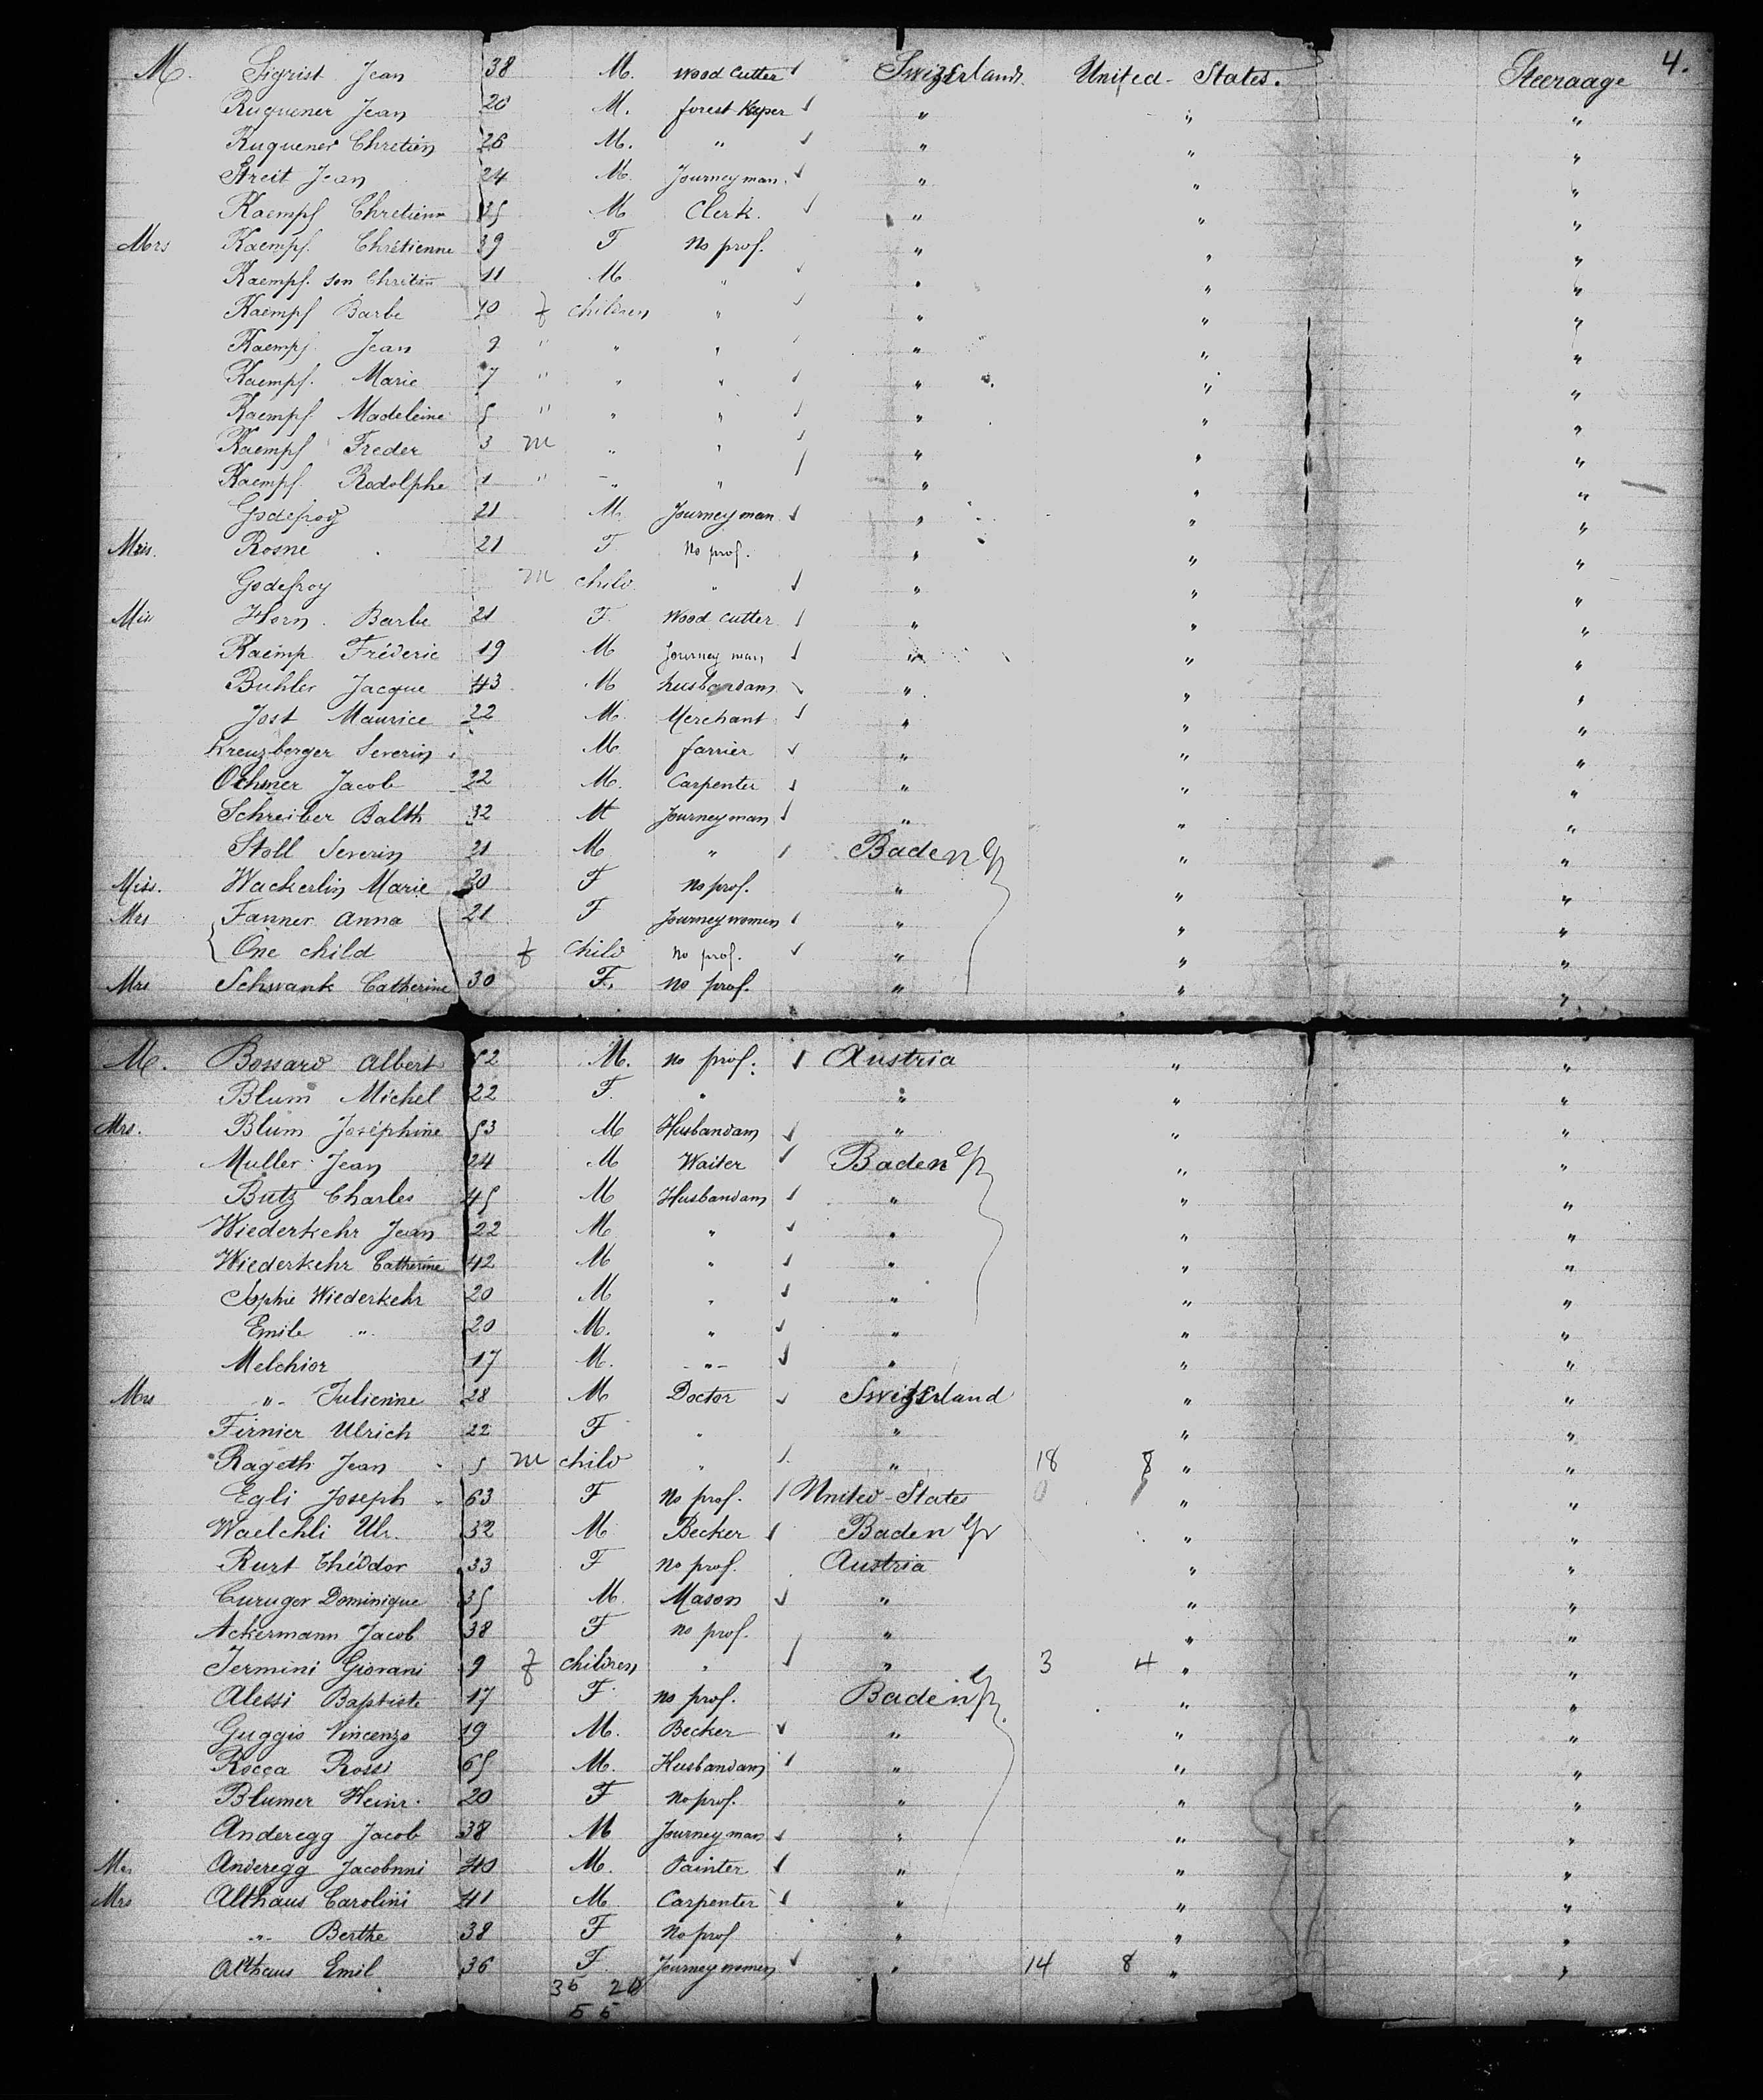 4.
M. Sigrist Jean 38 M. Wood Cutter Swizerland United-States. Steeraage
Ruquener Jean 20 M. forest Keper " " "
Ruquener Chretien 26 M. " " " "
Streit Jean 24 M. Journey man. " " "
Kaempf Chretienn 35 M Clerk. " " "
Mrs Kaempf. Chrétienne 39 F No prof. " " "
Kaempf. son Chrétien 11 M " " " "
Kaempf Barbe 10 f children " " " "
Kaempf Jean 9 " " " " " "
Kaempf. Marie 7 " " " " " "
Kaempf. Madeleine 5 " " " " " "
Kaempf Freder 3 m " " " " "
Kaempf. Rodolphe 1 " " " " " "
Godefroy 21 M Journey man " " "
Rosne 21 F No prof. " " "
Godefroy m child " " " "
Horn. Barbe 21 F. Wood cutter " " "
Kaemp Fréderic 19 M Journey man " " "
Buhler Jacque 43 M husbandam " " "
Jost Maurice 22 M. Merchant " " "
Kreuzberger Severin M farrier " " "
Jacob 22 M. Carpenter " " "
Schreiber Balth 32 M Journeyman " " "
Stoll Severin 21 M " Baden " "
Miss. Wackerlin Marie 20 F No prof. " " "
Mrs Fanner Anna 21 F Journey women " " "
One child f Child No prof. " " "
Mrs Schwank Catherine 30 F. No prof. " " "
M. Bossard Albert 52 M. No prof. Austria " "
Blum Michel 22 F. " " " "
Mrs. Blum Joséphine 53 M Husbandam " " "
Muller Jean 24 M Waiter Baden " "
Butz Charles 45 M Husbandam " " "
Wiederkehr Jean 22 M " " " "
Wiederkehr Catherine 42 M " " " "
Sophie Wiederkehr 20 M " " " "
Emile " 20 M. " " " "
Melchior 17 M. " " " "
Mrs " Julienne 28 M Doctor Swizerland " "
Firnier Ulrich 22 F " " " "
Rageth Jean 5 m child " " 18 8 " "
Egli Joseph 63 F No prof. United-States " "
Waelchli Ulr. 32 M Becker Baden " "
Kurt Théodor 33 F No prof. Austria " "
Dominique 35 M. Mason " " "
Ackermann Jacob 38 F No prof. " " "
Jermini Giovani 9 f children " " 3 4 " "
Alessi Baptiste 17 F. No prof. Baden " "
Guggis Vincenzo 19 M. Becker " " "
Rocca Rossi 65 M. Husbandam " " "
Blumer Heinr. 20 F No prof. " " "
Anderegg Jacob 38 M Journey man " " "
Anderegg Jacobnni 40 M. Painter " " "
Mrs Althaus Carolini 41 M Carpenter " " "
" Berthe 38 F No prof " " "
Althaus Emil 36 F. Journey women " 14 8 " "
35 20
55